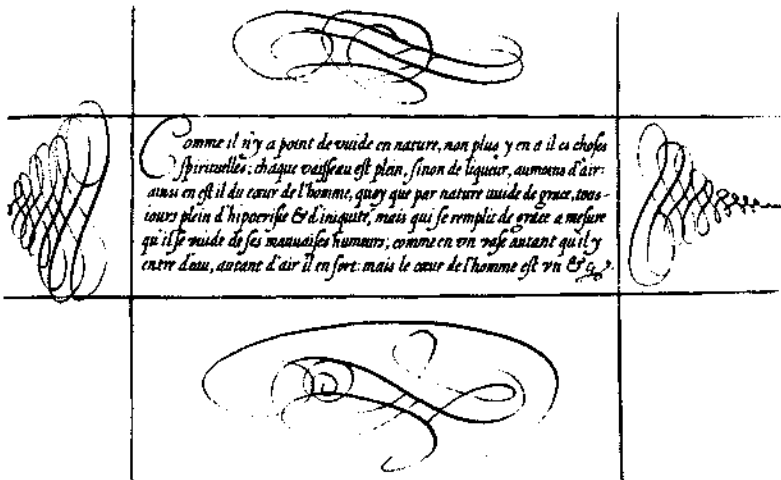 Comme il n'y a point de vuide en nature, non plus y en a il es choses
spirituelles; chaque vaisseau est plein, sinon de liqueur, aumoins d'air:
ainsi en est il du cœur de l'homme, quoy que par nature vuide de grace, tous-
iours plein d'hipocrisie & d'iniquité, mais qui se remplit de grace a mesure
qu'il se vuide de ses mauuaises humeurs; comme en vn vase autant qu'il y
entre d'eau, autant d'air il en sort: mais le cœur de l'homme est vn &c.